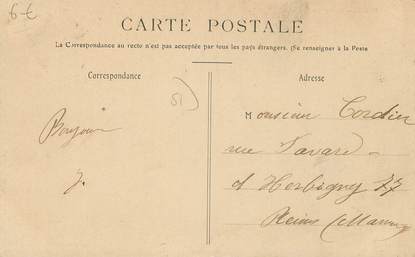 6 €
CARTE POSTALE
La Correspondance au recto n'est pas acceptée par tous les pays étrangers. (Se renseigner à la Poste
Correspondance
Adresse
51
Monsieur Cordier
Bonjour
rue Savard
J.
d'Herbigny 27
Reims (Marne)